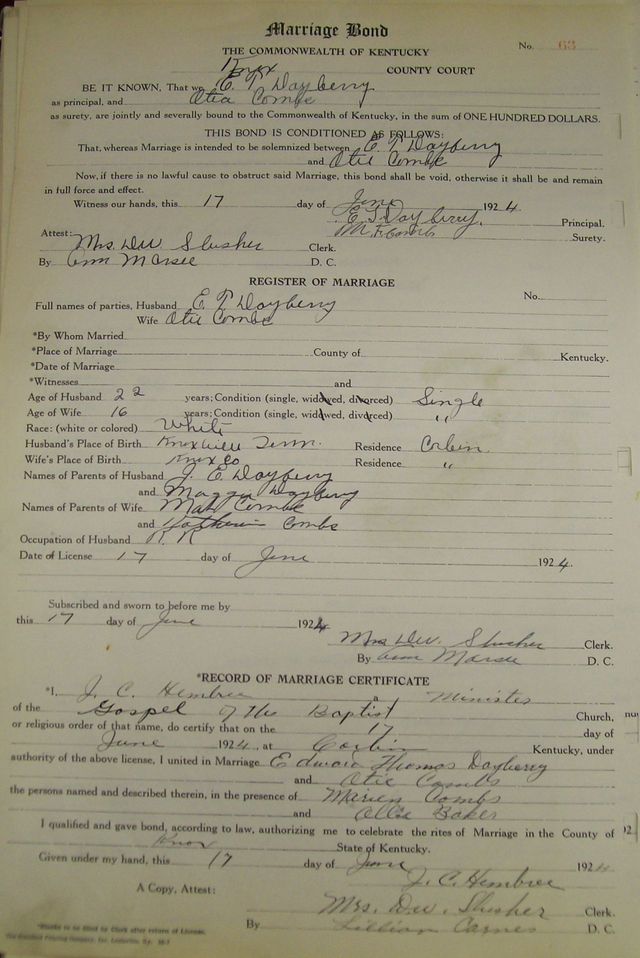 Marriage Bond
THE COMMONWEALTH OF KENTUCKY
No. 63
Knox COUNTY COURT
BE IT KNOWN, That we E. T. Dayberry
as principal, and Otia Combs
as surety, are jointly and severally bound to the Commonwealth of Kentucky, in the sum of ONE HUNDRED DOLLARS.
THIS BOND IS CONDITIONED AS FOLLOWS:
That, whereas Marriage is intended to be solemnized between E T Dayberry
and Otie Combs
Now, if there is no lawful cause to obstruct said Marriage, this bond shall be void, otherwise it shall be and remain
in full force and effect.
Witness our hands, this 17 day of June 1924
E. T. Dayberry. Principal.
M. F. Combs Surety.
Attest: Mrs. Dew Slusher Clerk.
By Ann Marsee D. C.
REGISTER OF MARRIAGE
Full names of parties, Husband E. T Dayberry No.
Wife Otie Combs
*By Whom Married
*Place of Marriage County of Kentucky.
*Date of Marriage
*Witnesses and
Age of Husband 22 years; Condition (single, widowed, divorced) Single
Age of Wife 16 years; Condition (single, widowed, divorced) "
Race: (white or colored) White
Husband's Place of Birth Knoxville Tenn. Residence Corbin
Wife's Place of Birth Knox Co Residence "
Names of Parents of Husband J. E Dayberry
and Maggie Dayberry
Names of Parents of Wife Combs
and Combs
Occupation of Husband R. R
Date of License 17 day of June 1924.
Subscribed and sworn to before me by
this 17 day of June 1924
Mrs Dew. Slusher Clerk.
By Ann Marsee D. C.
*RECORD OF MARRIAGE CERTIFICATE
*I, J. C. Hembree a Minister
of the Gospel of the Baptist Church,
or religious order of that name, do certify that on the 17 day of
June 1924, at Corbin Kentucky, under
authority of the above license, I united in Marriage Edward Thomas Dayberry
and Otie Combs
the persons named and described therein, in the presence of Marion Combs
and Ollie Baker
I qualified and gave bond, according to law, authorizing me to celebrate the rites of Marriage in the County of
Knox State of Kentucky.
Given under my hand, this 17 day of June 1924
J. C. Hembree
A Copy, Attest: Mrs. Dew. Slusher Clerk.
By Lillian Carnes D. C.
*Blanks to be filled by Clerk after return of License.